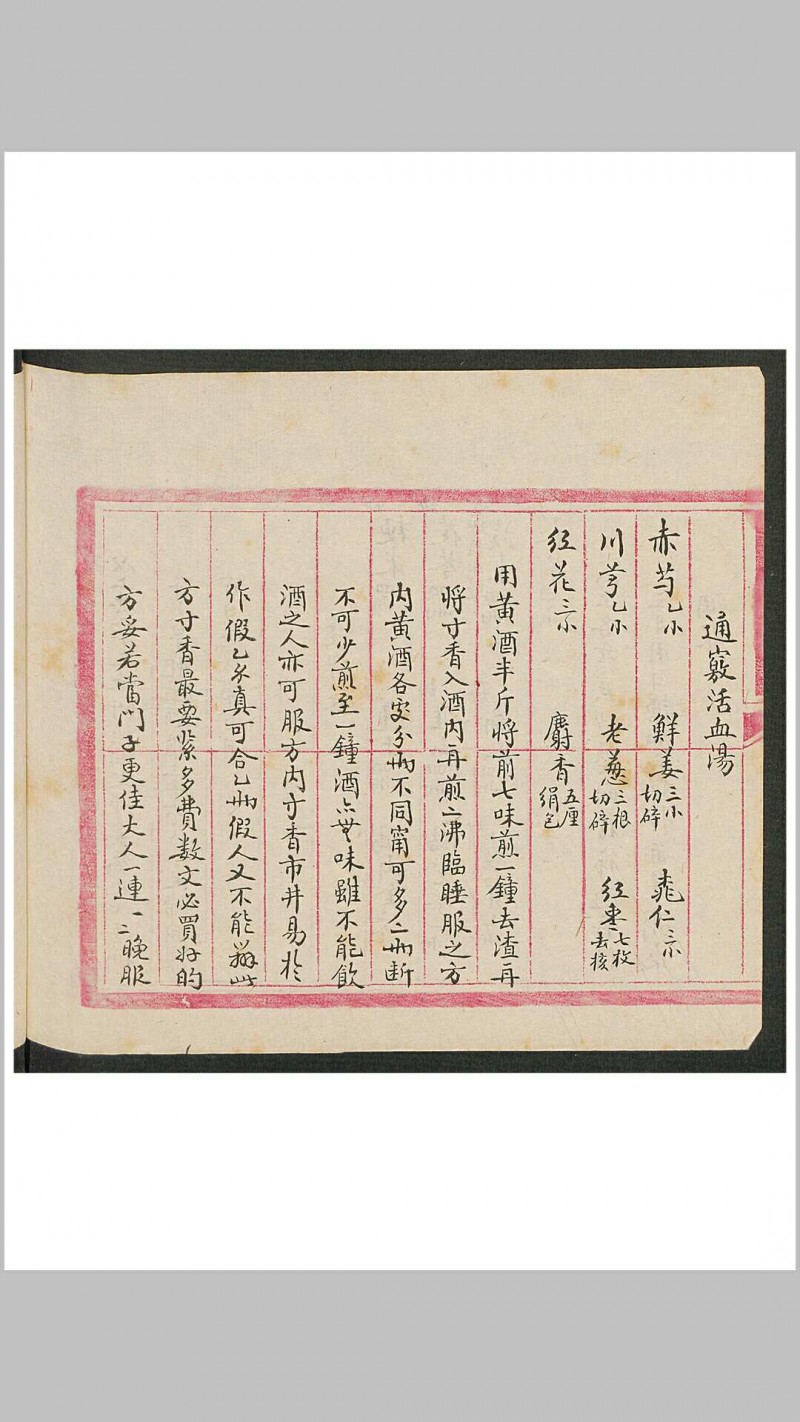 通竅活血湯
赤芍乙小 鮮姜三小切碎 桃仁三小
川芎乙小 老葱三根切碎 红枣七枚去核
红花三小 麝香五厘绢包
用黄酒半斤将前七味煎一鐘去渣再
将寸香入酒内再煎二沸臨睡服之方
内黄酒各處分兩不同甯可多二兩断
不可少煎至一鐘酒亦無味雖不能飲
酒之人亦可服方内寸香市井易扵
作假乙分真可合乙兩假人又不能辨此
方寸香最要紧多費数文必買好的
方妥若當門子更佳大人一連三晚服